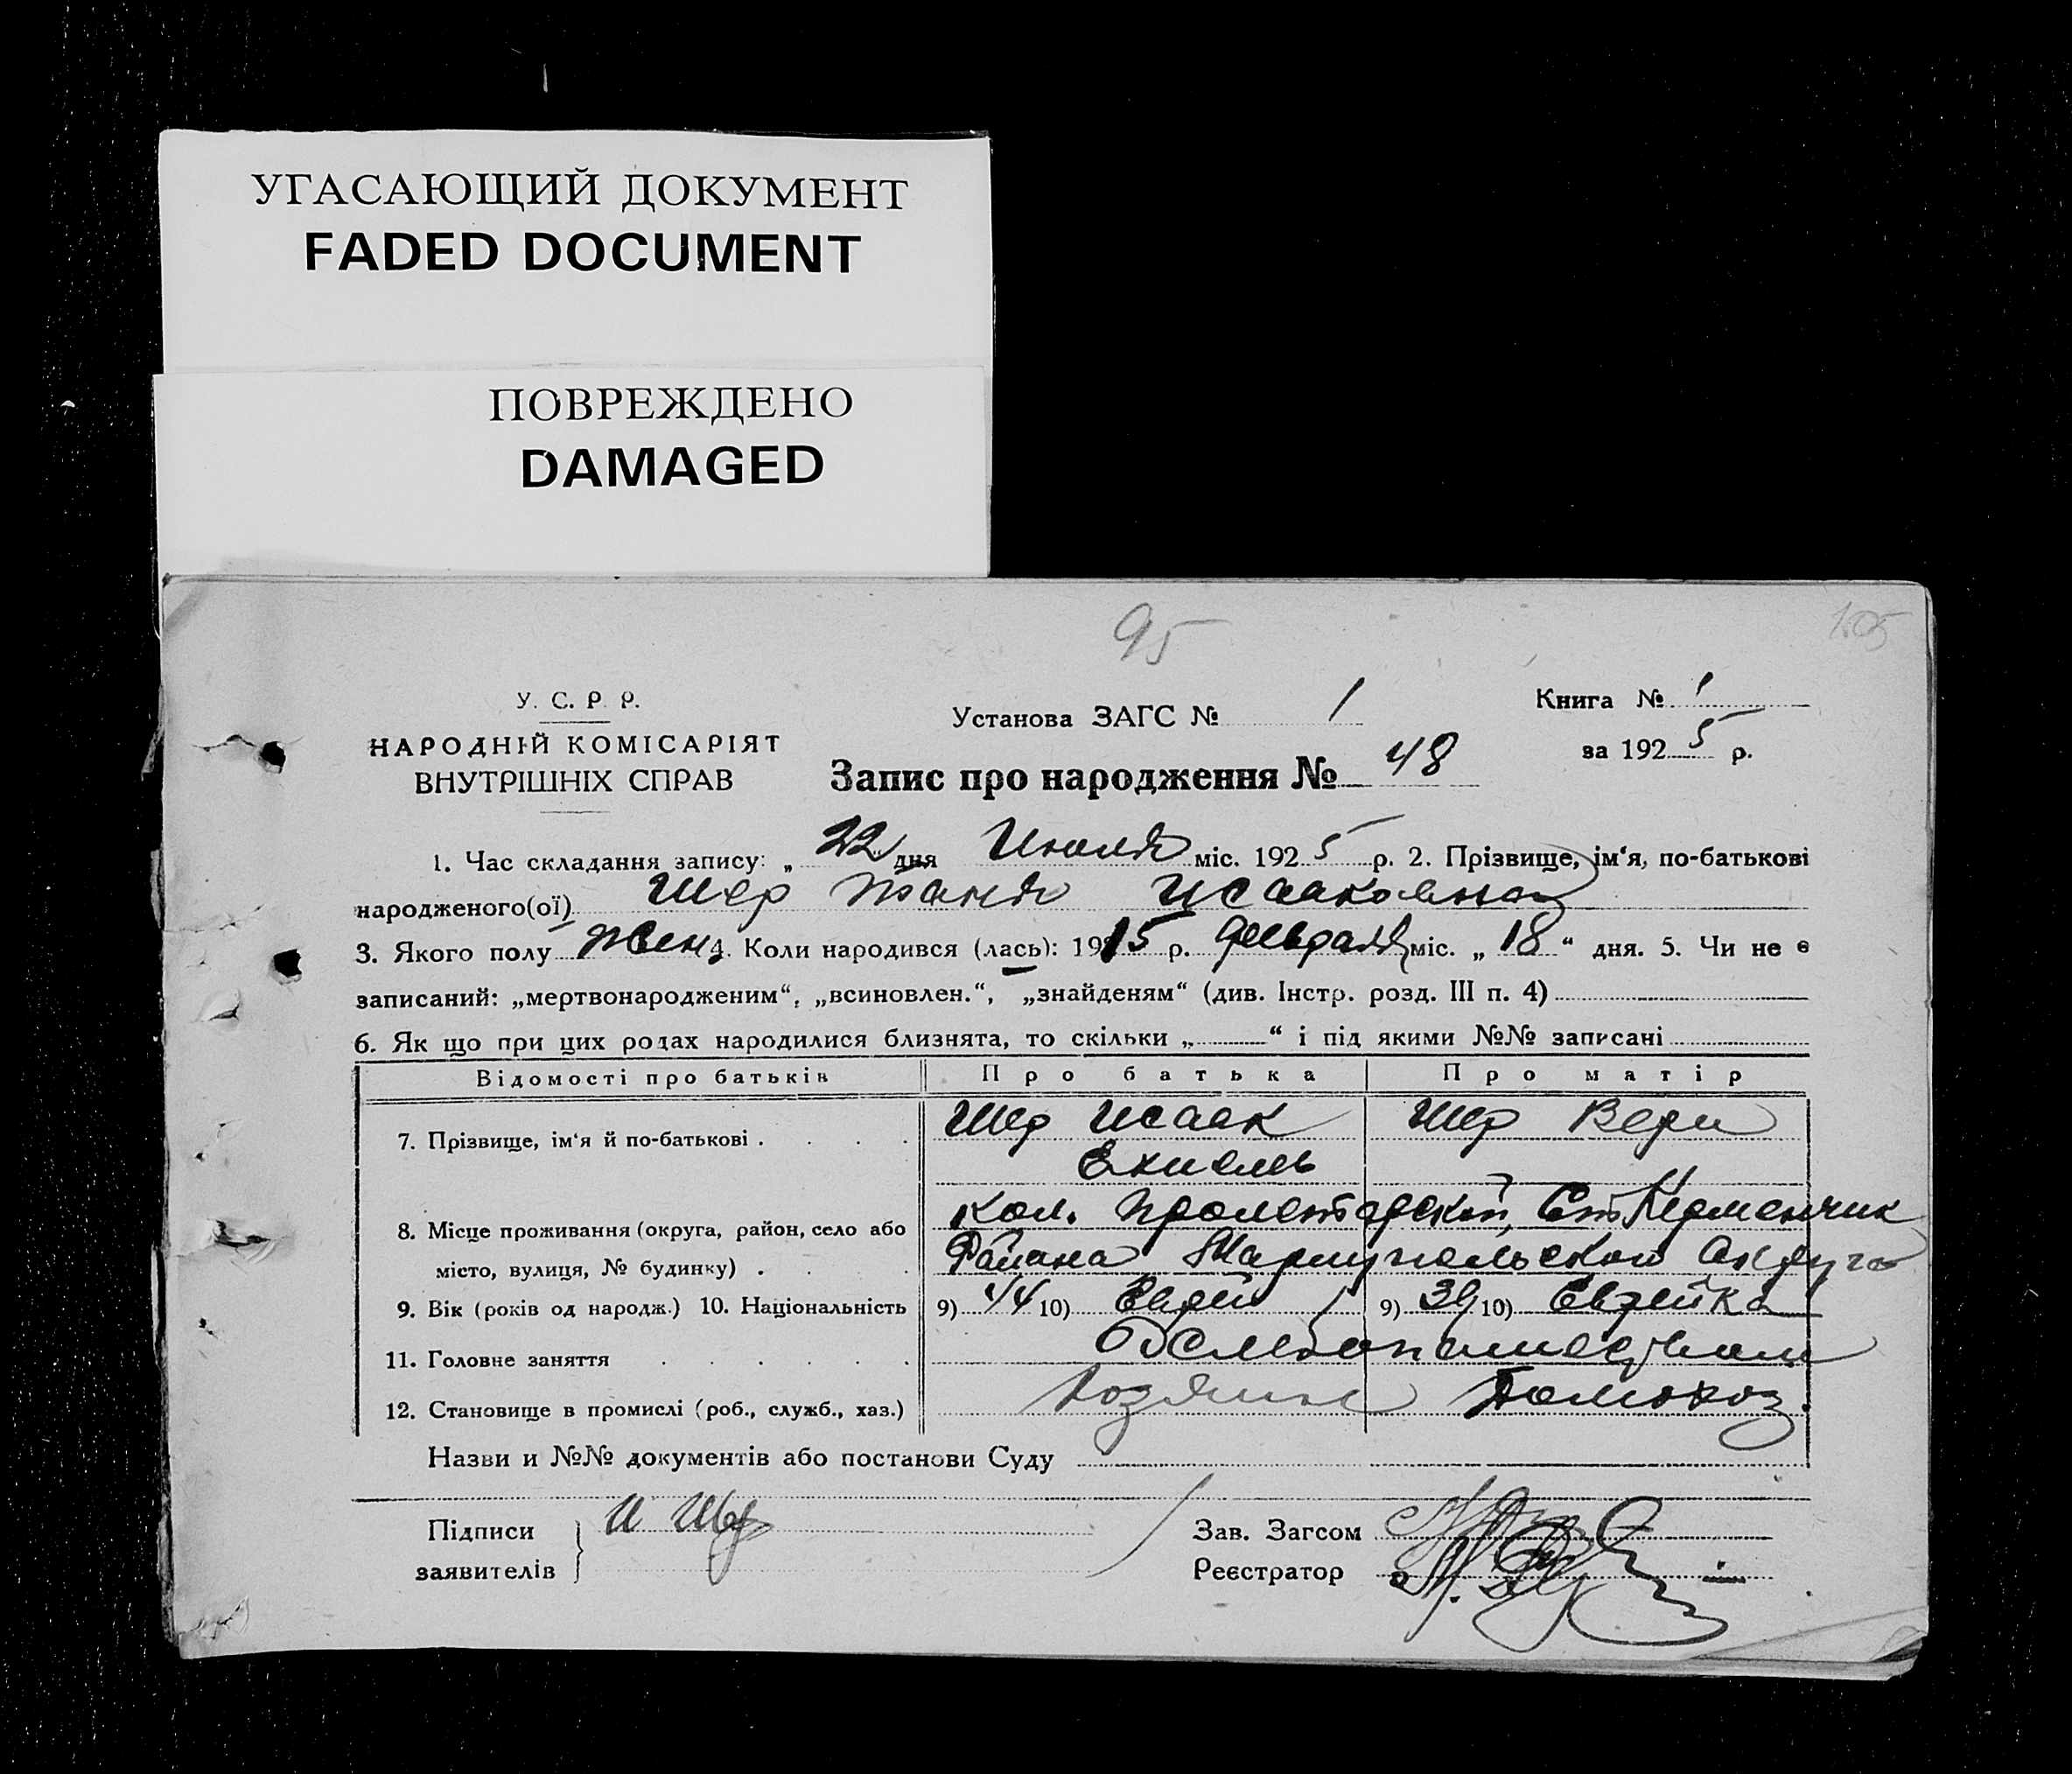 УГАСАЮЩИЙ ДОКУМЕНТ
FADED DOCUMENT
ПОВРЕЖДЕНО
DAMAGED
95
105
У. С. Р. Р.
НАРОДНІЙ КОМІСАРІЯТ
ВНУТРІШНІХ СПРАВ
Установа ЗАГС № 1
Книга № 1
за 1925 р.
Запис про народження № 48
1. Час складання запису: „22" дня Июля міс. 1925 р. 2. Прізвище, ім'я, по-батькові
народженого(ої) Шер Таня Исааковна
3. Якого полу Жен 4. Коли народився (лась): 1915 р. февраля міс. „18" дня. 5. Чи не є
записаний: „мертвонародженим", „всиновлен.", „знайденям" (див. Інстр. розд. III п. 4)
6. Як що при цих родах народилися близнята, то скільки „ " і під якими №№ записані
Відомості про батьків Про батька Про матір
7. Прізвище, ім'я й по-батькові . . . . Шер Исаак Шер Вери
Ехиелев
кол. Пролетарской, Ст Керменчик
8. Місце проживання (округа, район, село або
Района Мариупольской Округа
місто, вулиця, № будинку) . . .
9. Вік (років од народж.) 10. Національність 9) 44 10) Еврей 9) 39 10) Еврейка
11. Головне заняття . . . . . .
12. Становище в промислі (роб., служб., хаз.) Хозяин Помохоз.
Назви и №№ документів або постанови Суду
Підписи
заявителів
И Шер
Зав. Загсом
Реєстратор